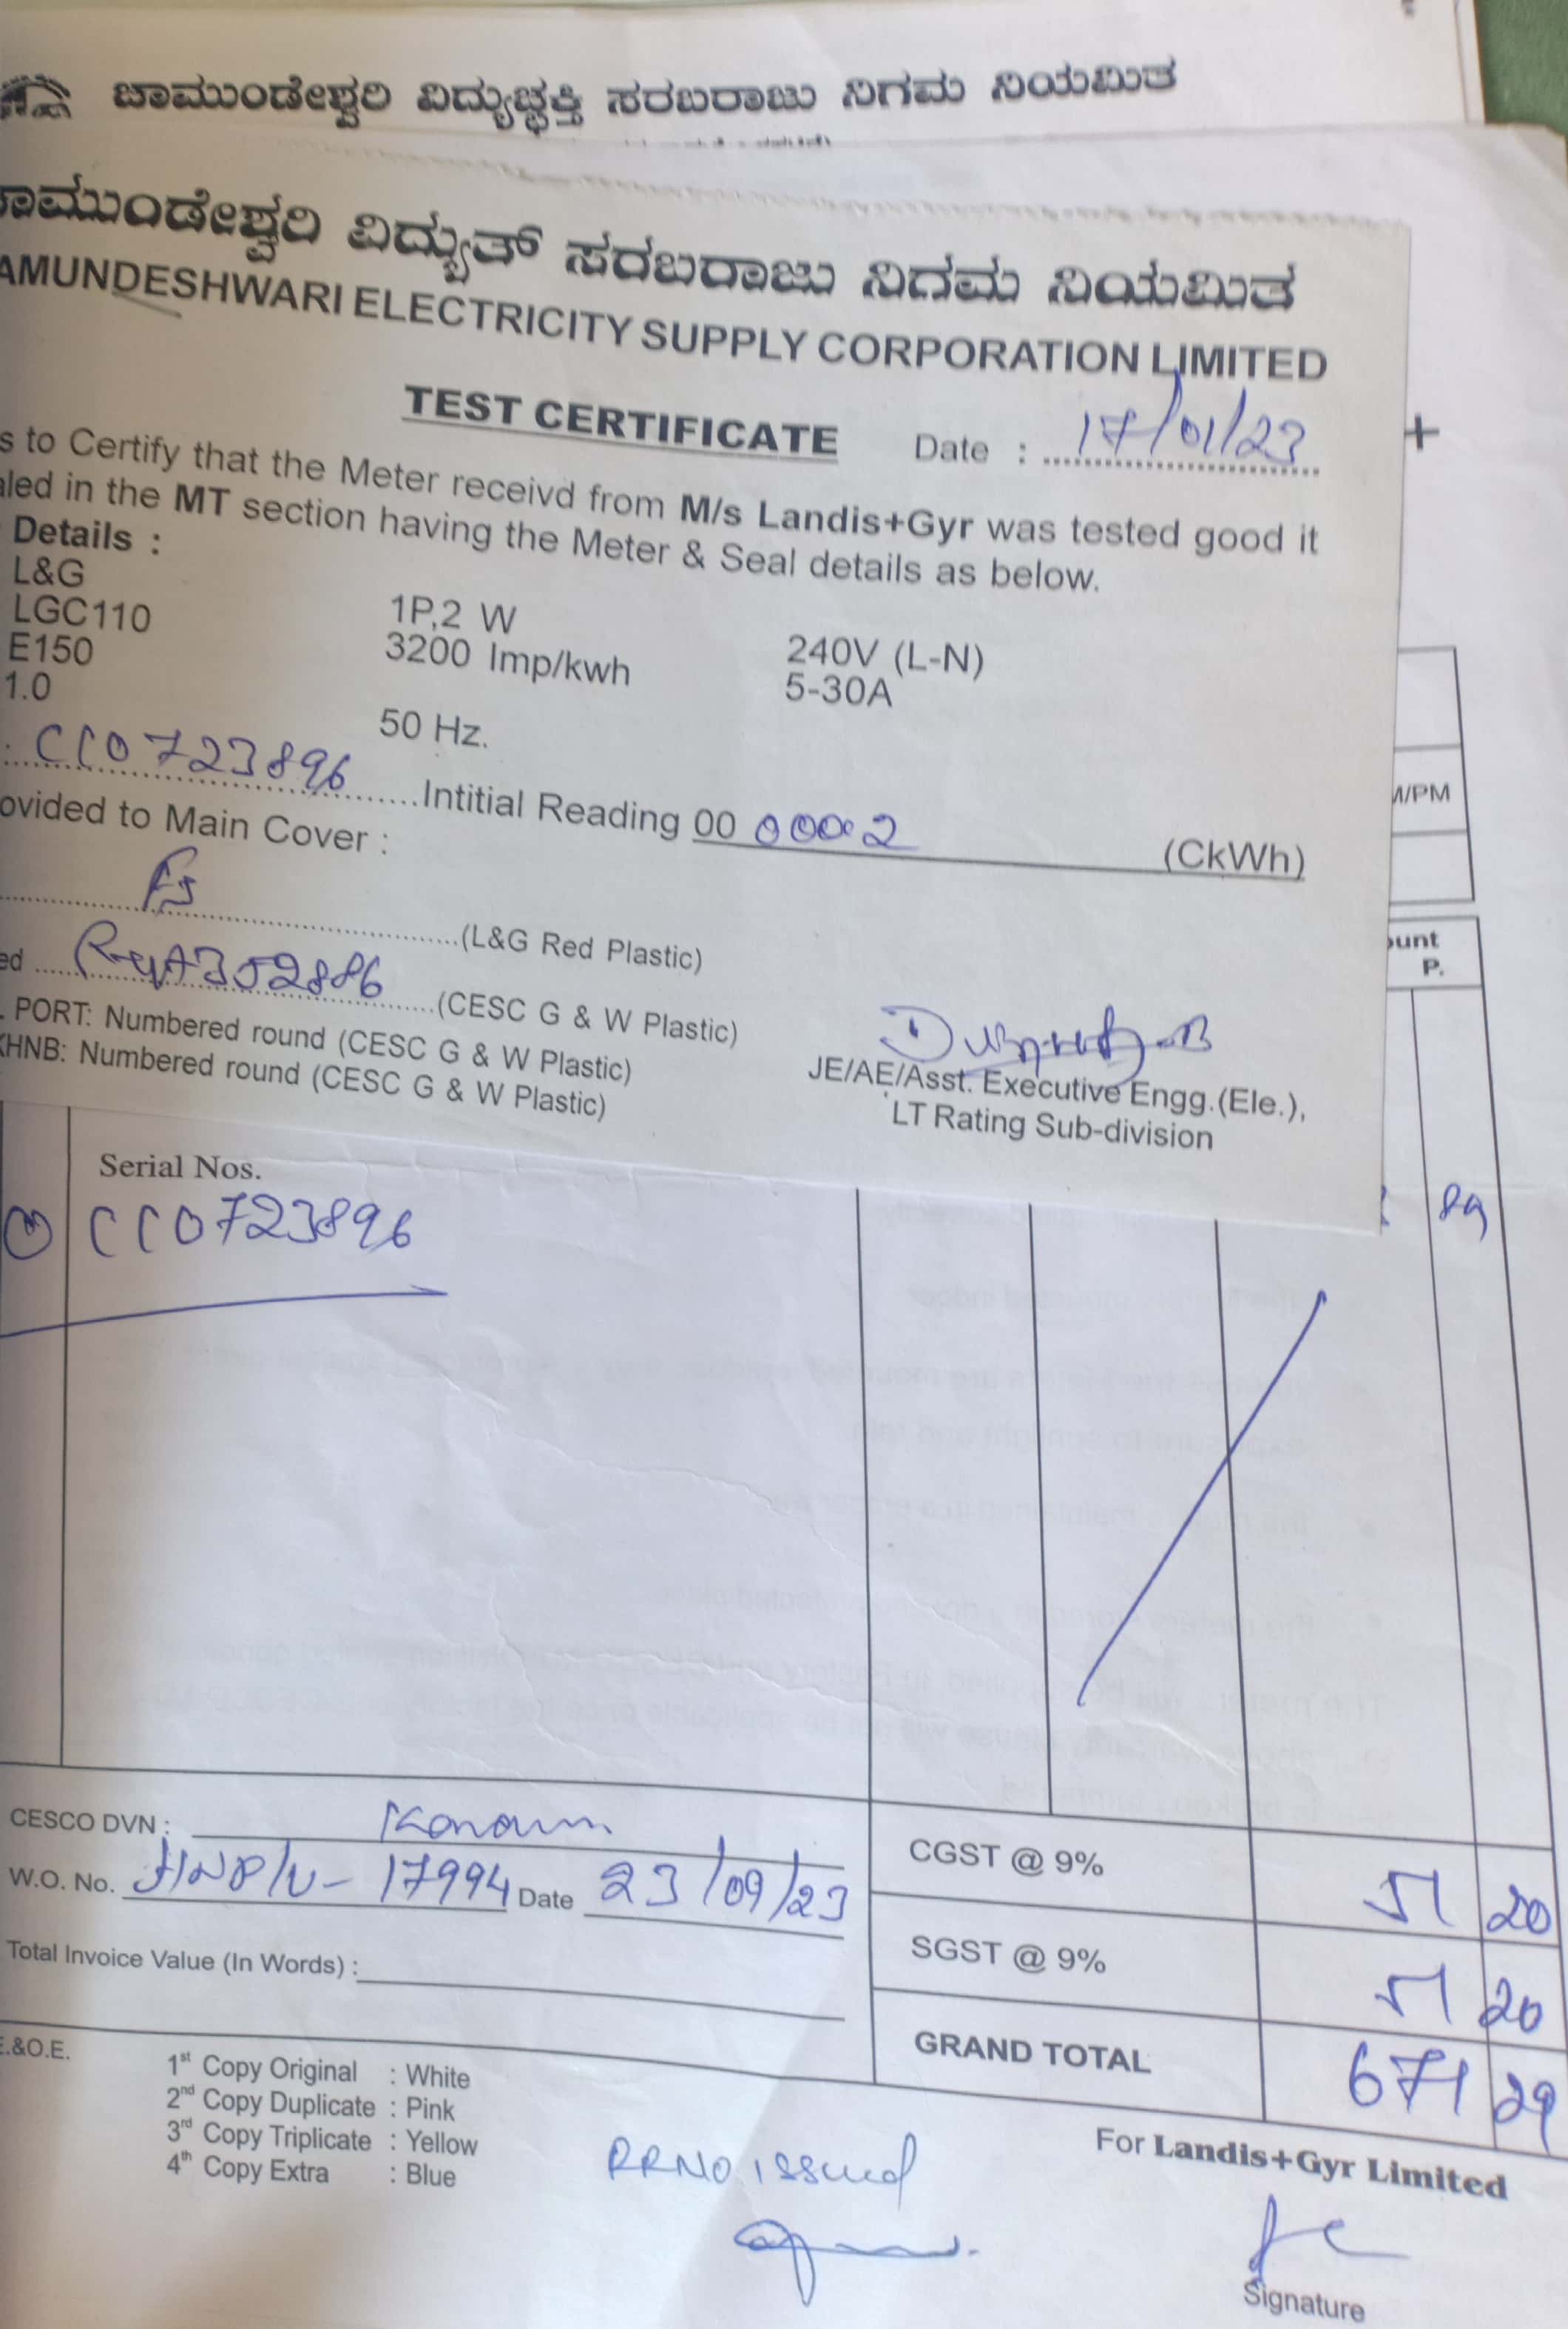 ಚಾಮುಂಡೇಶ್ವರಿ ವಿದ್ಯುಚ್ಛಕ್ತಿ ಸರಬರಾಜು ನಿಗಮ ನಿಯಮಿತ
ಾಮುಂಡೇಶ್ವರಿ ವಿದ್ಯುತ್ ಸರಬರಾಜು ನಿಗಮ ನಿಯಮಿತ
AMUNDESHWARI ELECTRICITY SUPPLY CORPORATION LIMITED
TEST CERTIFICATE Date : 17/01/23
s to Certify that the Meter receivd from M/s Landis+Gyr was tested good it
aled in the MT section having the Meter & Seal details as below.
Details :
L&G
LGC110 1P,2 W 240V (L-N)
E150 3200 Imp/kwh 5-30A
1.0 50 Hz.
CC0723896 Intitial Reading 00 00002 (CkWh)
ovided to Main Cover :
(L&G Red Plastic)
ed 352886 (CESC G & W Plastic)
PORT: Numbered round (CESC G & W Plastic)
HNB: Numbered round (CESC G & W Plastic)
JE/AE/Asst. Executive Engg.(Ele.),
LT Rating Sub-division
+
M/PM
ount
P.
Serial Nos.
CC0723896
89
CESCO DVN :
W.O. No. 17994 Date 23/09/23
Total Invoice Value (In Words) :
CGST @ 9% 51 20
SGST @ 9% 51 20
GRAND TOTAL 671 29
E.&O.E.
1st Copy Original : White
2nd Copy Duplicate : Pink
3rd Copy Triplicate : Yellow
4th Copy Extra : Blue
RRNO issued
For Landis+Gyr Limited
Signature